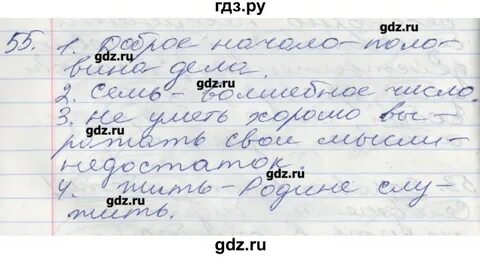 гдз.ру
55. 1. Доброе начало - поло-
вина дела.
2. Семь - волшебное число.
3. Не уметь хорошо вы-
ражать свои мысли -
недостаток.
gdz.ru
4. Жить - Родине слу-
жить.
gdz.ru